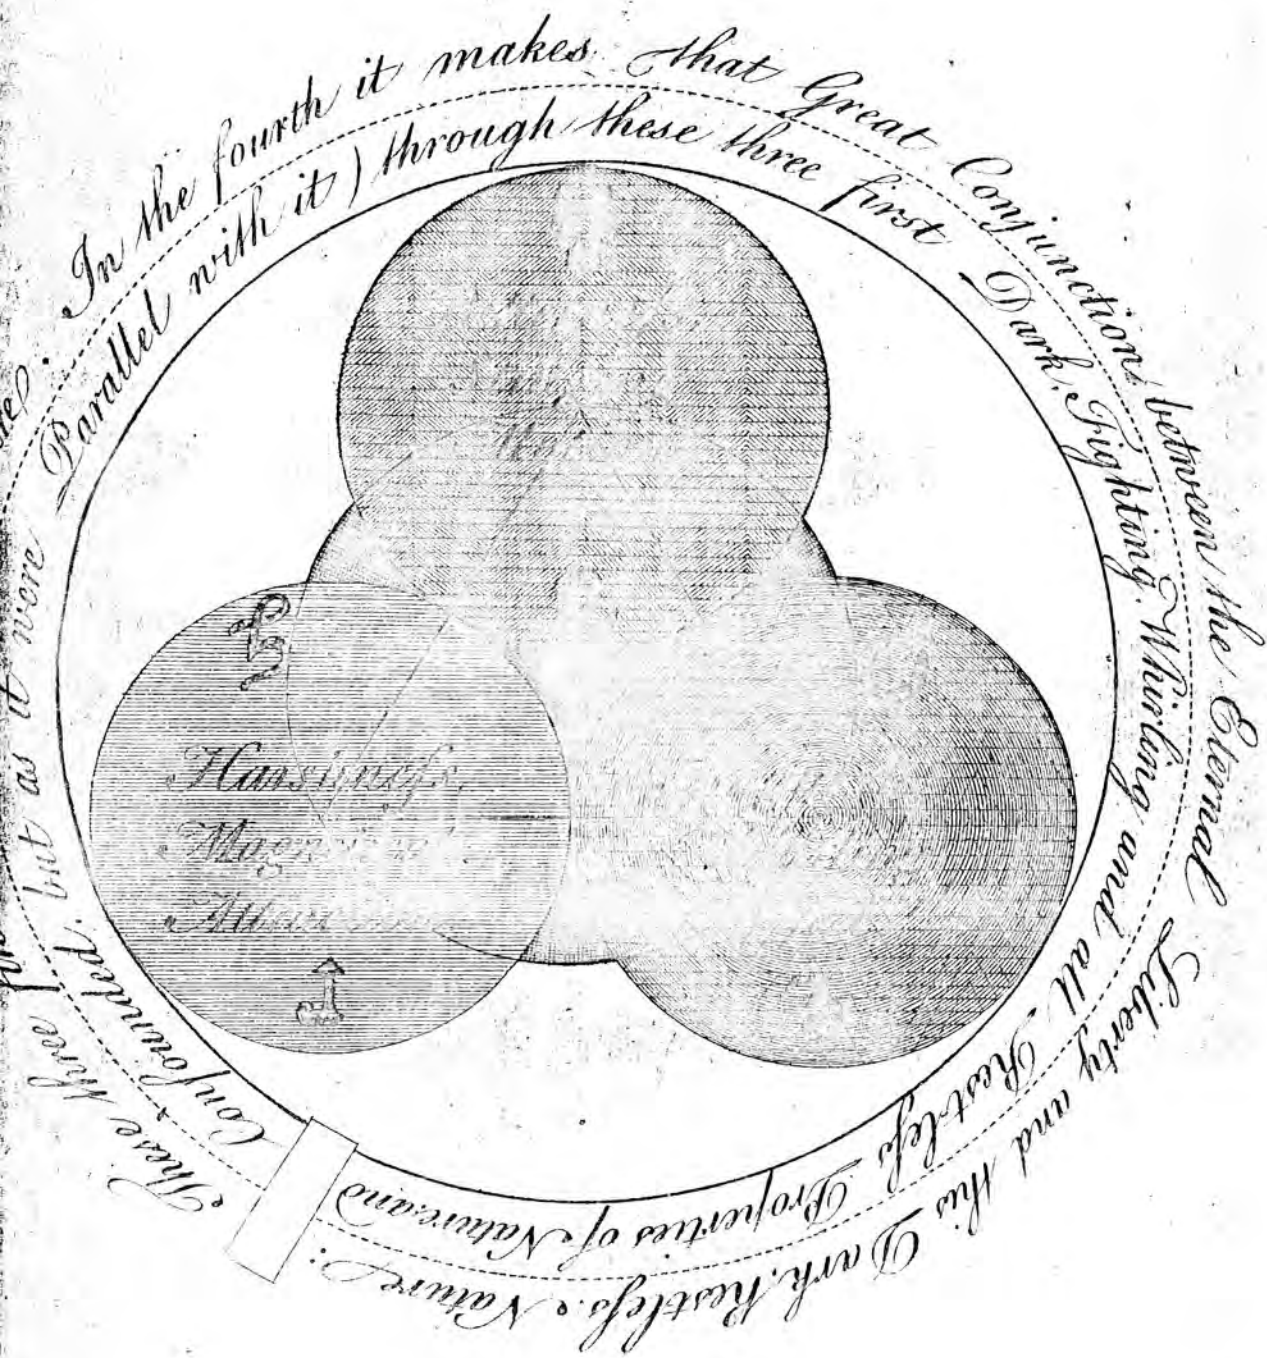 These three
In the fourth it makes that Great Conjunction between the Eternal Liberty and this Dark, Restleſs Nature:
Confounded, but as it were Parallel with it) through these three first Dark, Fighting, Whirling and all Restleſs Properties of Nature: and
Harshneſs,